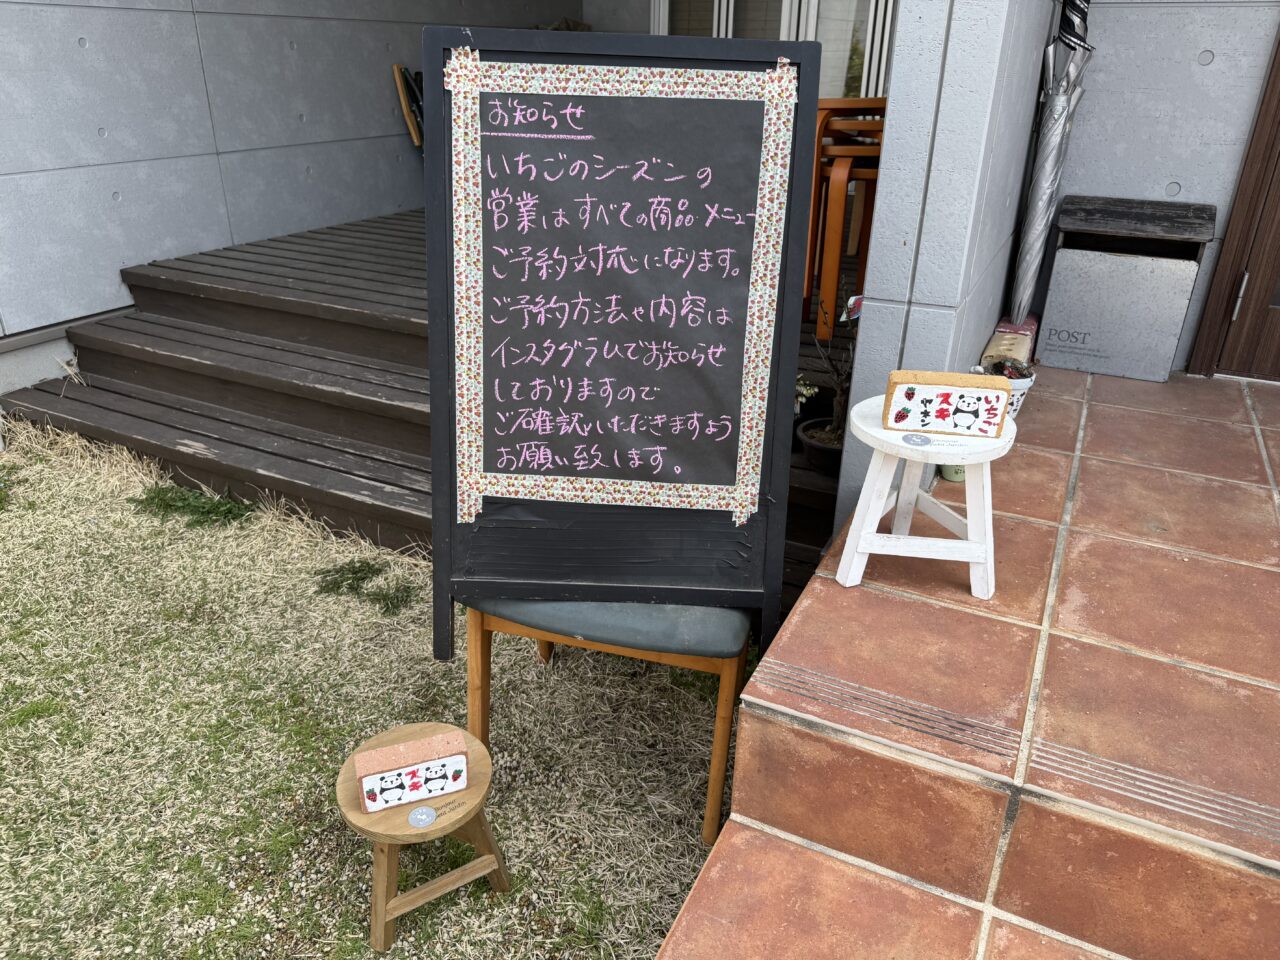 お知らせ
いちごのシーズンの
営業はすべての商品・メニュー
ご予約対応になります。
ご予約方法や内容は
インスタグラムでお知らせ
しておりますので
ご確認いただきますよう
お願い致します。
POST
いちご
スキ
ヤネン
スキ